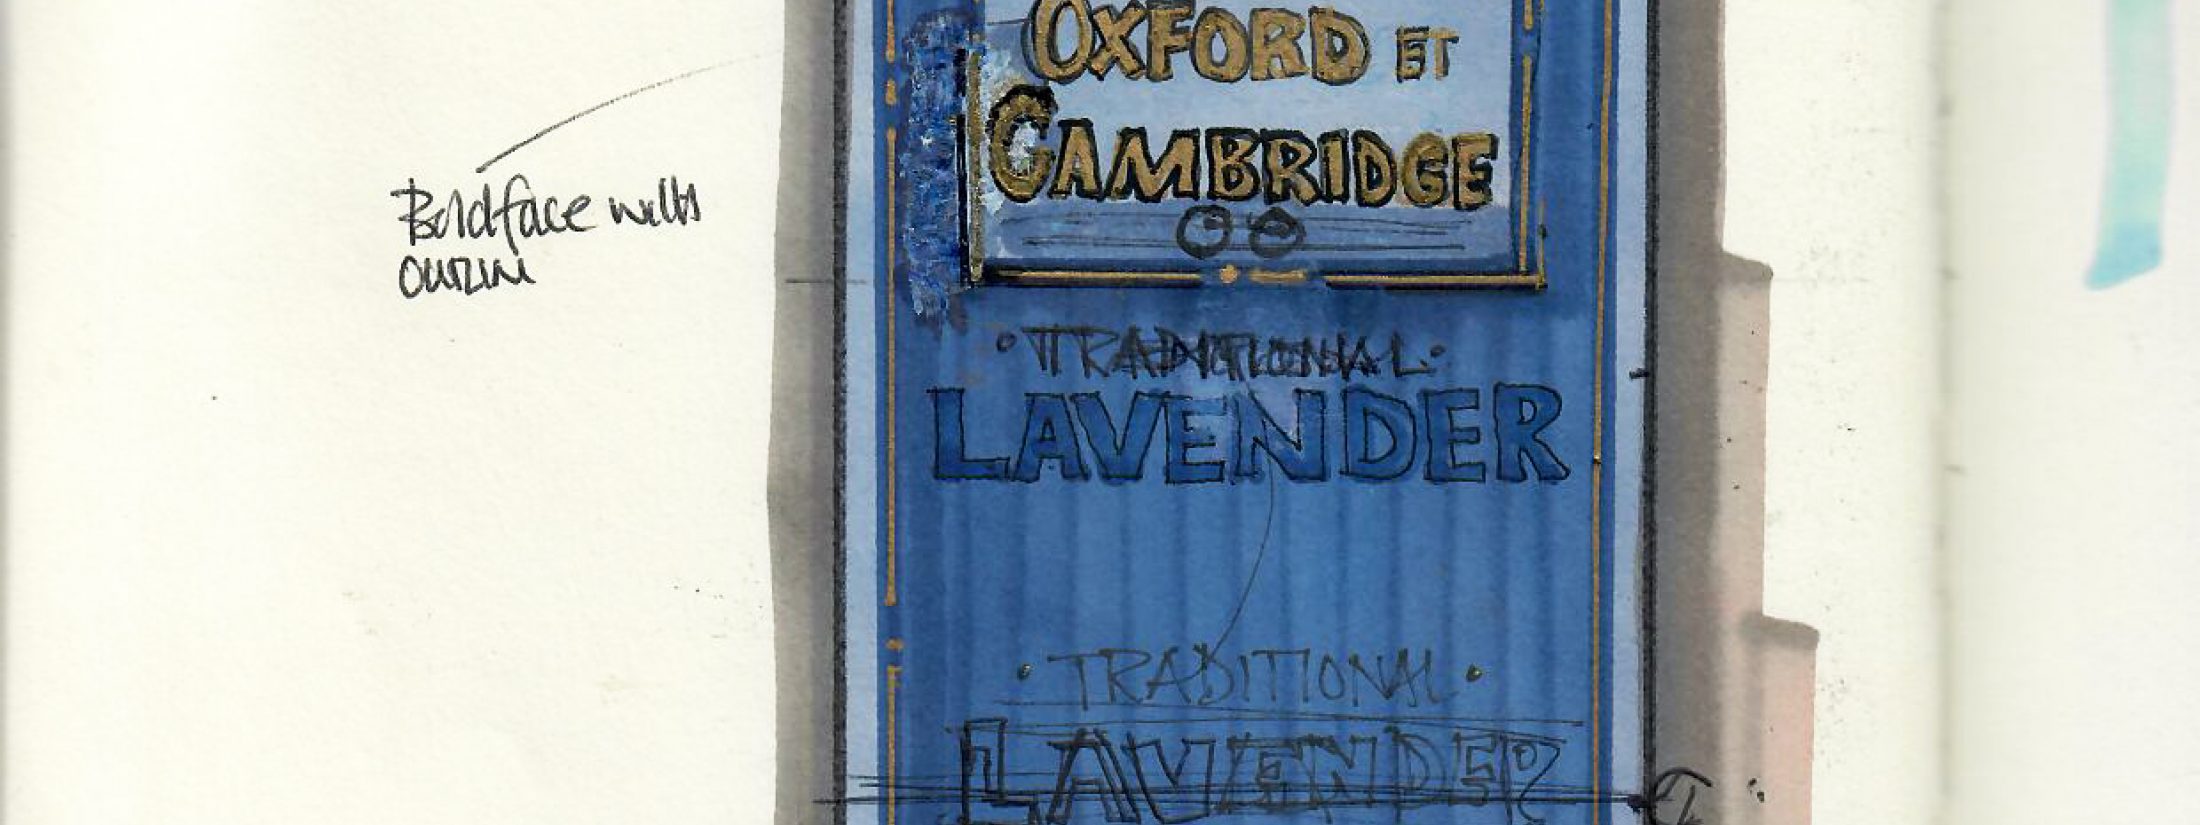 OXFORD ET
CAMBRIDGE
Boldface with
outline
· TRADITIONAL ·
LAVENDER
· TRADITIONAL ·
LAVENDER